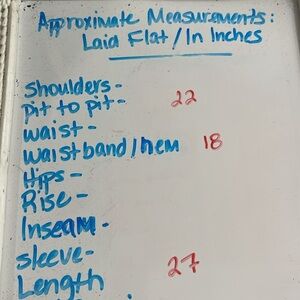 Approximate Measurements:
Laid Flat/In Inches
Shoulders-
Pit to pit- 22
Waist-
Waistband/hem 18
Hips-
Rise-
Inseam-
Sleeve- 27
Length